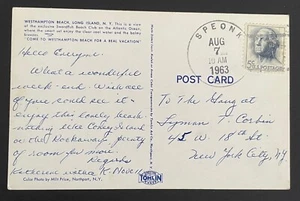 WESTHAMPTON BEACH, LONG ISLAND, N. Y. This is a view
of the exclusive Swordfish Beach Club on the Atlantic Ocean,
where the smart set enjoy the clean cool water and the balmy
Ocean breezes.
"COME TO WESTHAMPTON BEACH FOR A REAL VACATION"
Hello Everyone.
What a wonderful
week-end. Wish all
of you could see it &
enjoy this lovely beach
nothing like Coney Island
or the Rockaways plenty
of room for more.
Regards
Katherine
Color Photo by Milt Price, Northport, N. Y.
TOMLIN
SPEONK
AUG
7
10 AM
1963
5¢ U.S. POSTAGE
POST CARD
To The Gang at
Lyman F Corbin
45 W. 18th St
New York City, NY